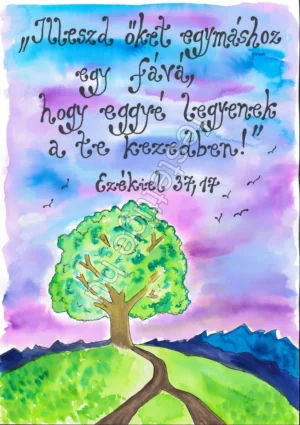 „Illeszd őket egymáshoz
egy fává,
hogy eggyé legyenek
a te kezedben!”
Ezékiel 37,17